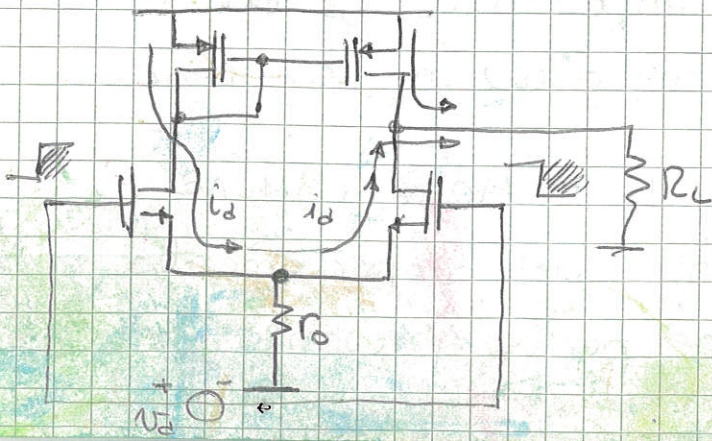 i_d i_d
R_L
r_o
+ -
v_d